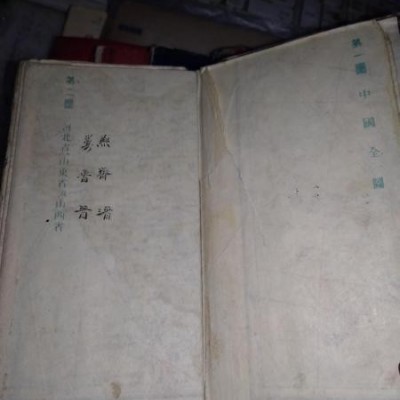 第一圖 中國全圖
燕齊
冀魯晉
第二圖
河北省 山東省 山西省